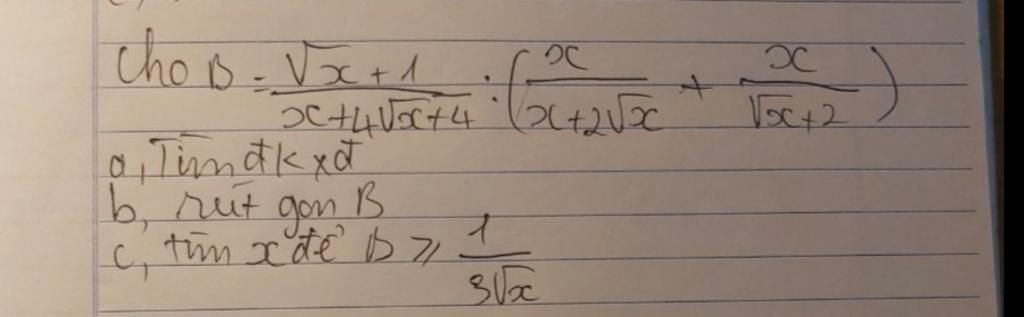 Cho B = (√x + 1)/(x + 4√x + 4) : (x/(x + 2√x) + x/(√x + 2))
a, Tìm đkxđ
b, rút gọn B
c, tìm x để B ⩾ 1/(3√x)